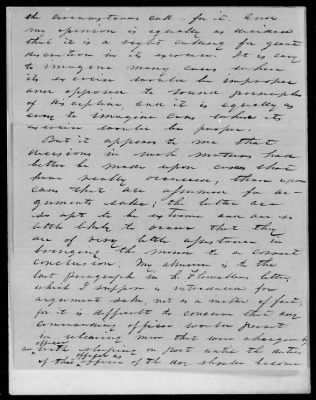 the circumstances call for it. And
my opinion is equally as decided
that it is a right calling for great
discretion in its exercise. It is easy
to imagine many cases where
its exercise would be improper
and opposed to sound principles
of discipline, and it is equally as
easy to imagine cases where its
exercise would be proper.
But it appears to me that
decisions in such matters had
better be made upon cases that
have really occurred, than upon
cases that are assumed for ar-
guments sake; the latter are
so apt to be extreme and are so
little likely to occur that they
are of very little assistance in
bringing the mind to a correct
conclusion. My allusion is to the
last paragraph in Lt. letter,
which I suppose is introduced for
argument sake, not as a matter of fact;
for it is difficult to conceive that any
commanding officer would persist
in releasing from arrest
an officer with sleeping on post until the duties
of that officer as officer of the day should become